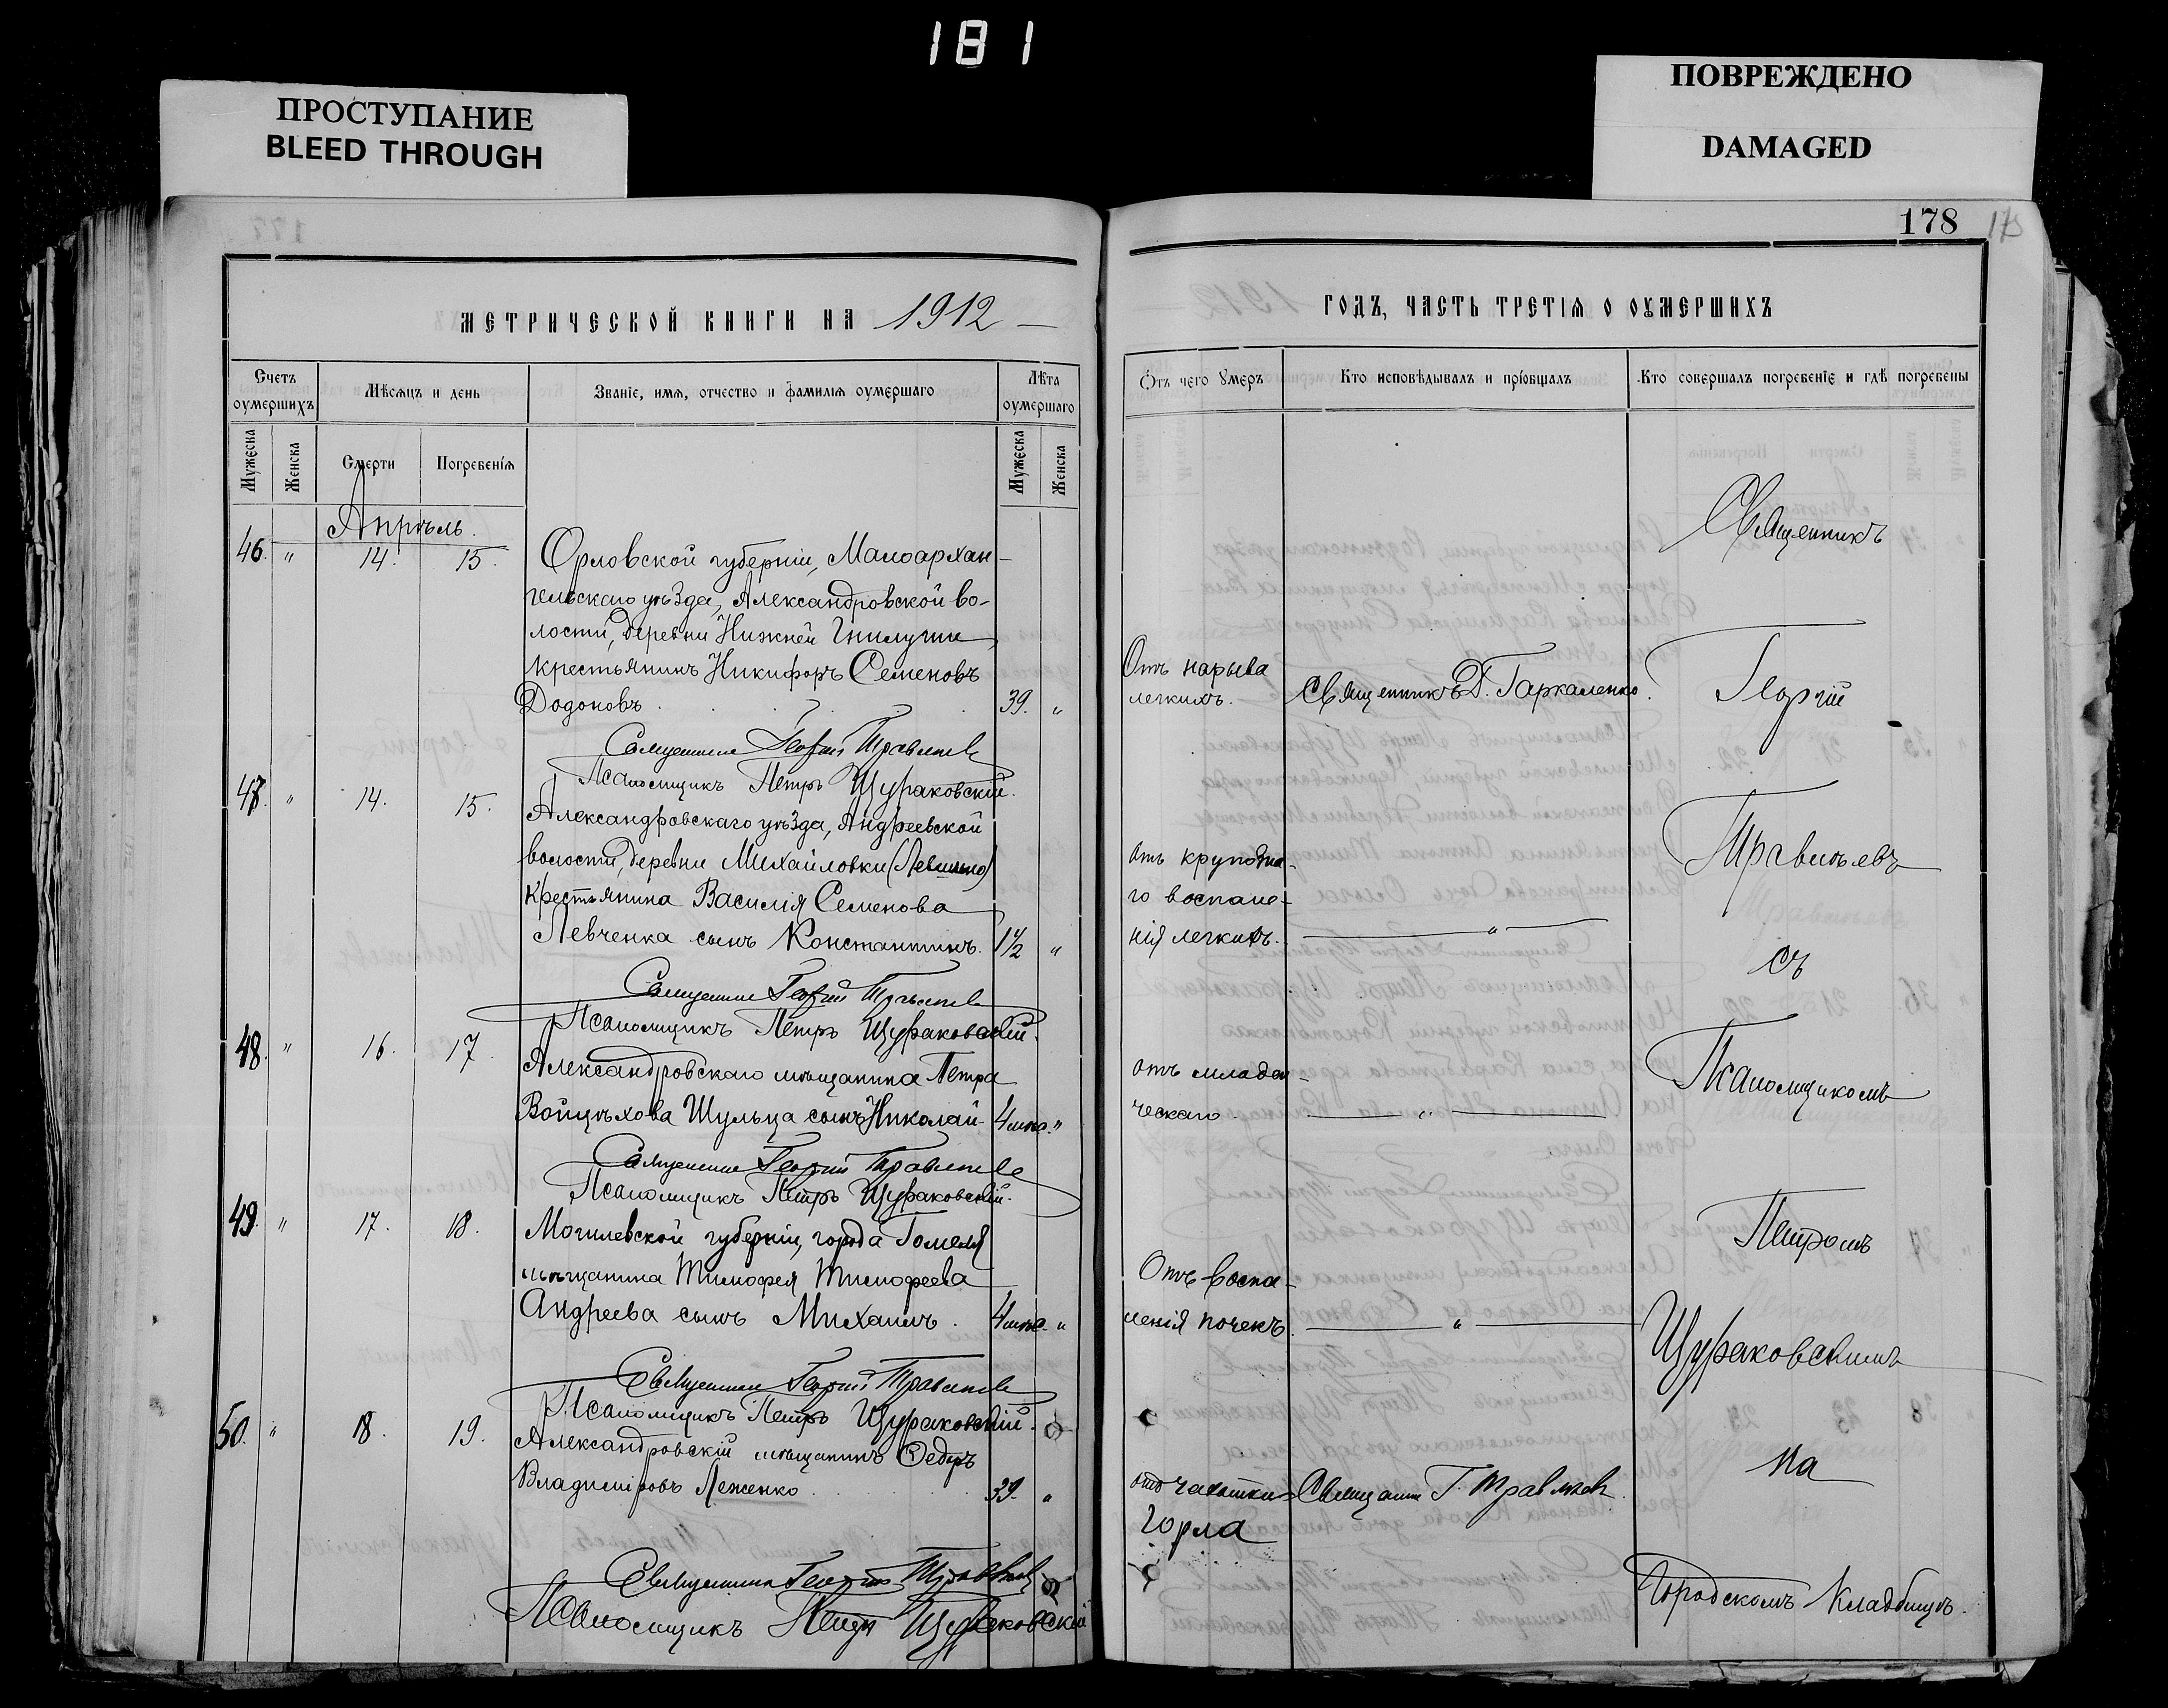 181
ПРОСТУПАНИЕ
BLEED THROUGH
ПОВРЕЖДЕНО
DAMAGED
178
175
МЕТРИЧЕСКОЙ КНИГИ НА 1912
Счетъ оумершихъ
Мѣсяцъ и день
Званіе, имя, отчество и фамилія оумершаго
Лѣта оумершаго
Мужеска
Женска
Смерти
Погребенія
Мужеска
Женска
Апрѣль.
46. " 14. 15. Орловской губерніи, Малоархан-
гельскаго уѣзда, Александровской во-
лости, деревни Нижней Гнилуши
крестьянинъ Никифоръ Семеновъ
Додоновъ. 39. "
Священникъ Георгій Травлѣевъ
Псаломщикъ Петръ Щураковскій.
47. " 14. 15. Александровскаго уѣзда, Андреевской
волости, деревни Михайловки (Левшино)
крестьянина Василія Семенова
Левченка сынъ Константинъ. 1½ "
Священникъ Георгій Травлѣевъ
Псаломщикъ Петръ Щураковскій.
48. " 16. 17. Александровскаго мѣщанина Петра
Войцѣхова Шульца сынъ Николай 4 мѣс. "
Священникъ Георгій Травлѣевъ
Псаломщикъ Петръ Щураковскій.
49. " 17. 18. Могилевской губерніи, города Гомеля
мѣщанина Тимофея Тимофеева
Андреева сынъ Михаилъ. 4 мѣс. "
Священникъ Георгій Травлѣевъ
Псаломщикъ Петръ Щураковскій.
50. " 18. 19. Александровскій мѣщанинъ Ѳедоръ
Владиміровъ Леженко. 39. "
Священникъ Георгій Травлѣевъ
Псаломщикъ Петръ Щураковскій
ГОДЪ, ЧАСТЬ ТРЕТІЯ О ОУМЕРШИХЪ
Отъ чего умеръ
Кто исповѣдывалъ и пріобщалъ
Кто совершалъ погребеніе и гдѣ погребены
Отъ нарыва
легкихъ. Священникъ Д. Гаркаленко.
отъ крупозна-
го воспале-
нія легкихъ. "
отъ младен-
ческаго. "
Отъ воспа-
ленія почекъ. "
отъ чахотки Священ. Г. Травлѣевъ.
горла
Священникъ
Георгій
Травлѣевъ
съ
Псаломщикомъ
Петромъ
Щураковскимъ
на
Городскомъ Кладбищѣ.